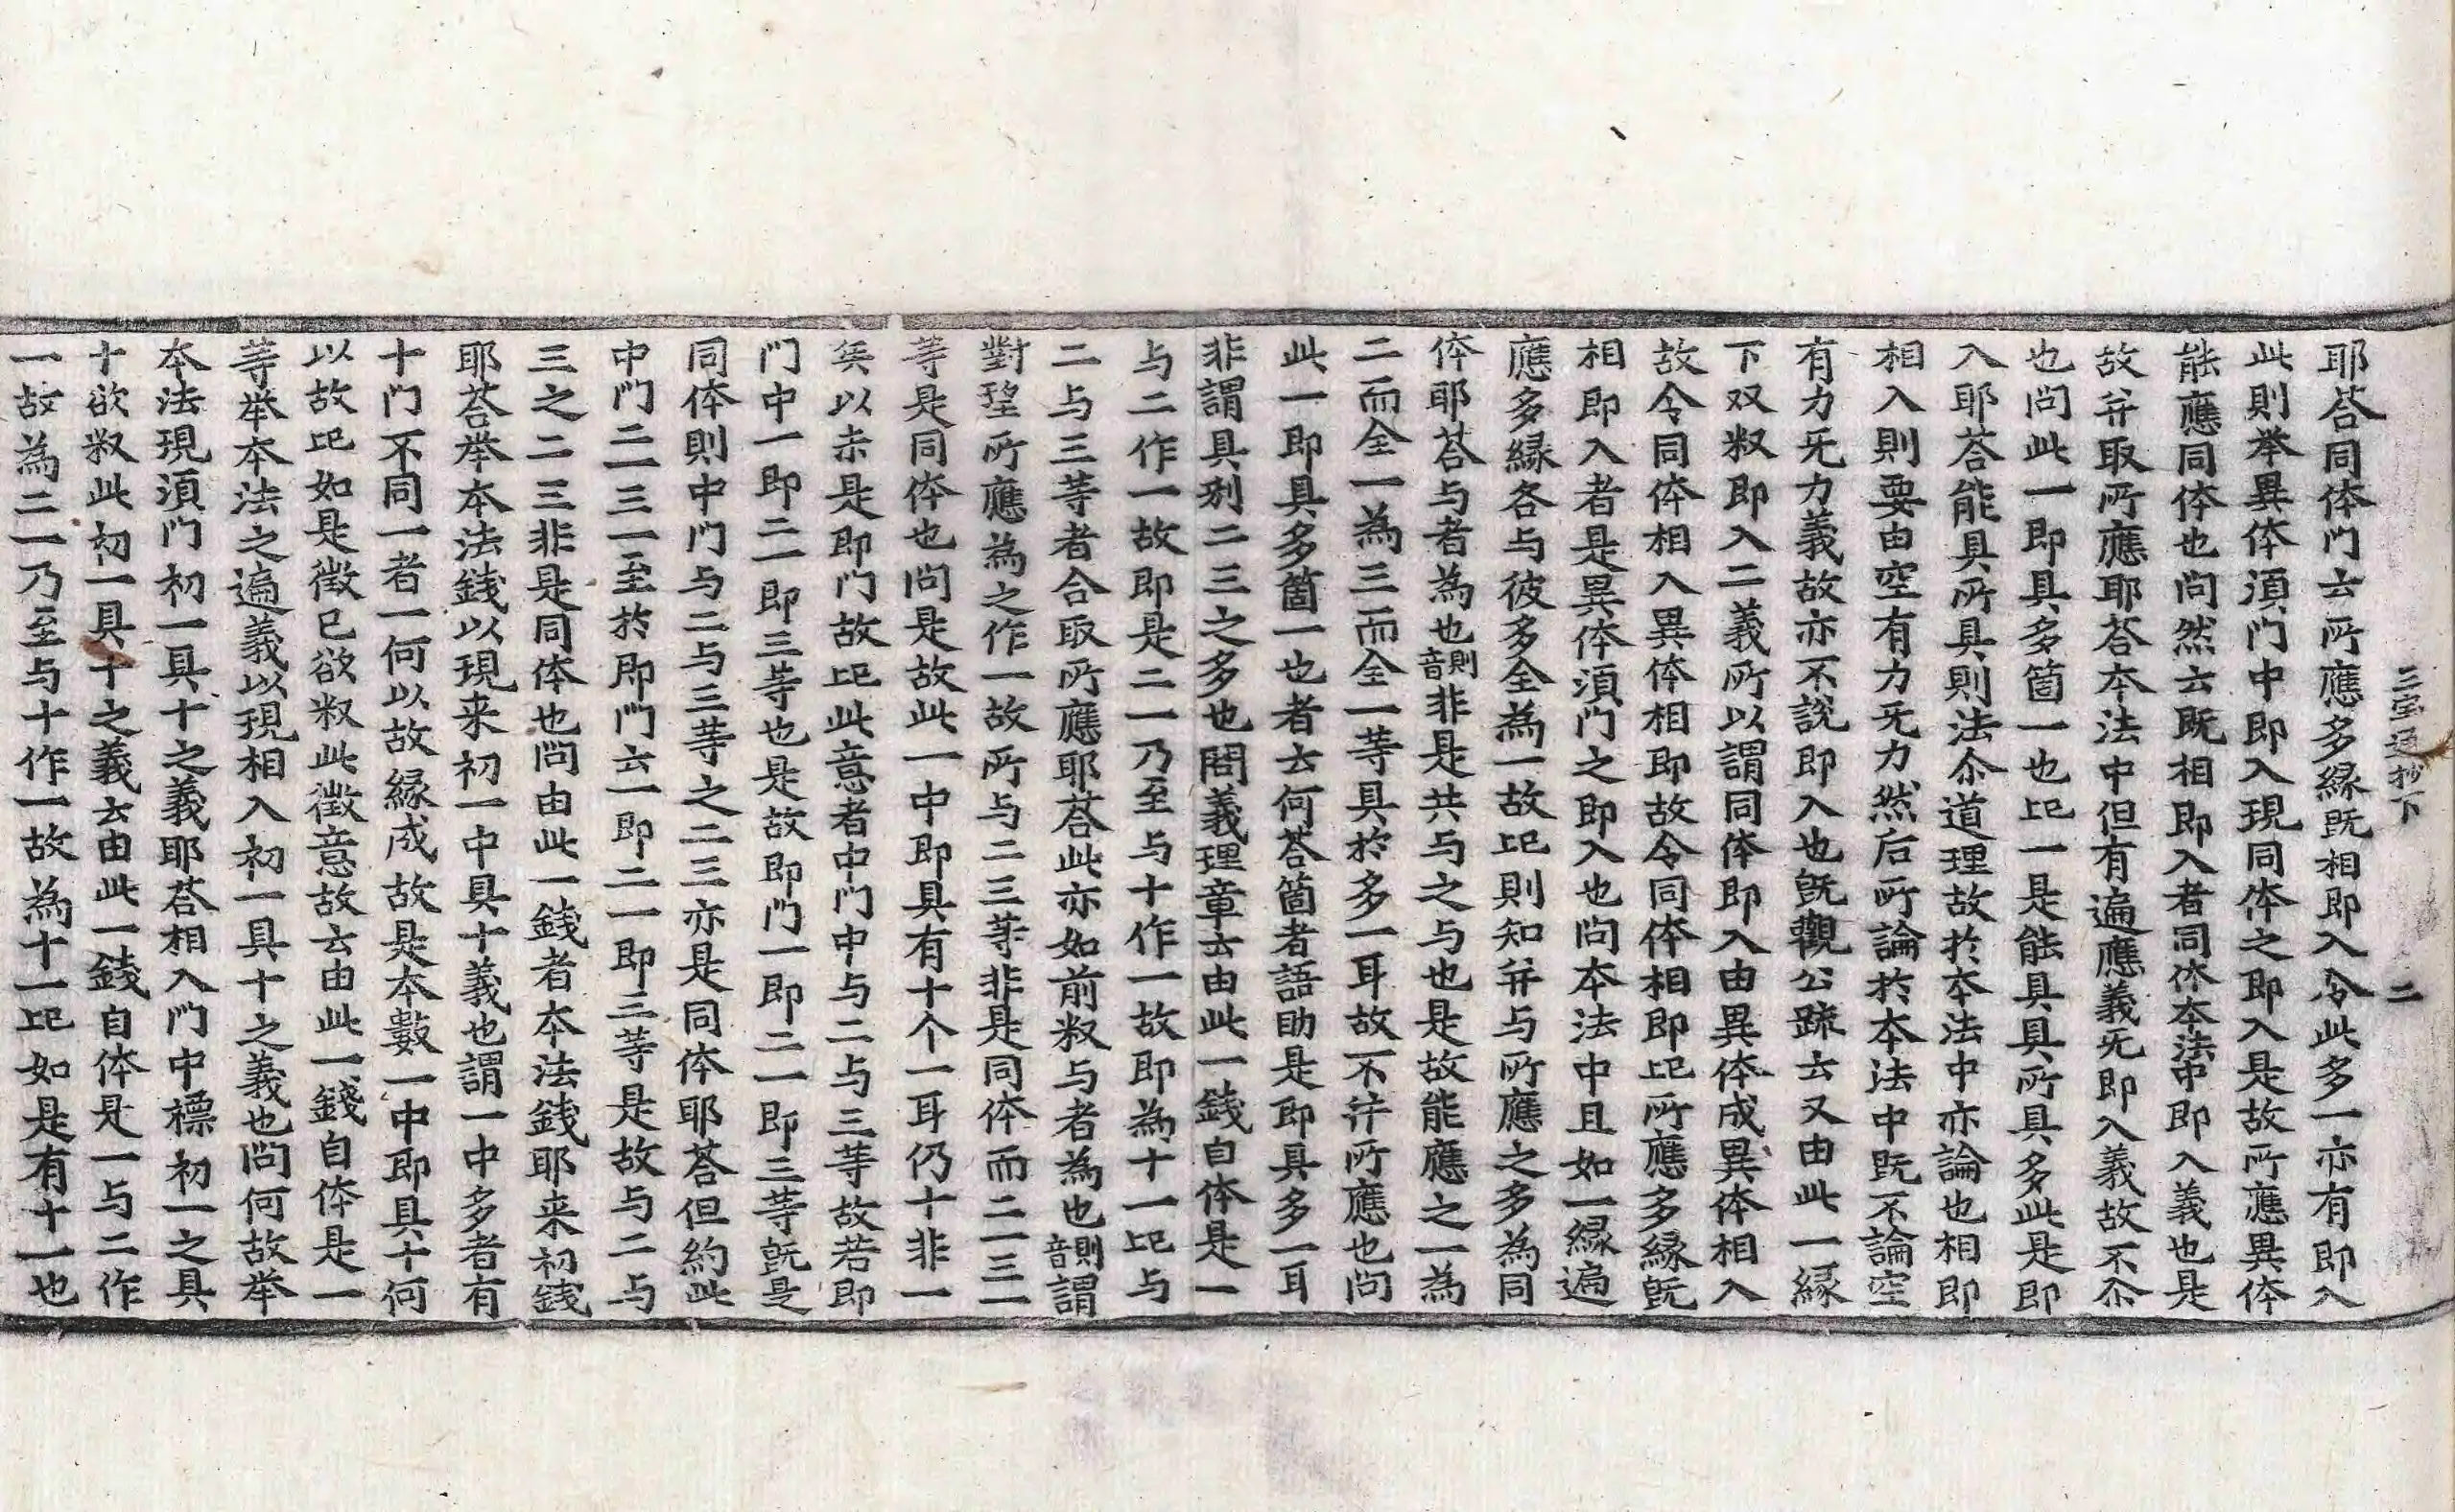 三宝通抄下　二
耶荅同体門云所應多緣旣相即入令此多一亦有即入
此則举異体湏門中即入現同体之即入是故所應異体
能應同体也问然云旣相即入者同体本法中即入義也是
故并取所應耶荅本法中但有遍應義旡即入義故不尒
也问此一即具多箇一也叱一是能具具所具多此是即
入耶荅能具所具則法尒道理故於本法中亦論也相即
相入則要由空有力旡力然后所論於本法中旣不論空
有力旡力義故亦不說即入也旣觀公䟽云又由此一緣
下双釈即入二義所以謂同体即入由異体成異体相入
故令同体相入異体相即故令同体相即叱所應多緣旣
相即入者是異体湏門之即入也问本法中且如一緣遍
應多緣各与彼多全為一故叱則知并与所應之多為同
体耶荅与者為也則音非是共与之与也是故能應之一為
二而全一為三而全一等具於多一耳故不并所應也问
此一即具多箇一也者云何荅箇者語助是即具多一耳
非謂具別二三之多也問義理章云由此一錢自体是一
与二作一故即是二一乃至与十作一故即為十一叱与
二与三等者合取所應耶荅此亦如前釈与者為也則音謂
對望所應為之作一故所与二三等非是同体而二一三一
等是同体也问是故此一中即具有十个一耳仍十非一
矣以未是即門故叱此意者中門中与二与三等故若即
門中一即二一即三等也是故即門一即二一即三等旣是
同体則中門与二与三等之二三亦是同体耶荅但約此
中門二一三一至於即門云一即二一即三等是故与二与
三之二三非是同体也问由此一錢者本法錢耶来初錢
耶荅举本法錢以現来初一中具十義也謂一中多者有
十門不同一者一何以故緣成故是本數一中即具十何
以故叱如是徵已欲釈此徵意故云由此一錢自体是一
等举本法之遍義以現相入初一具十之義也问何故举
本法現湏門初一具十之義耶荅相入門中標初一之具
十欲釈此初一具十之義云由此一錢自体是一与二作
一故為二一乃至与十作一故為十一叱如是有十一也